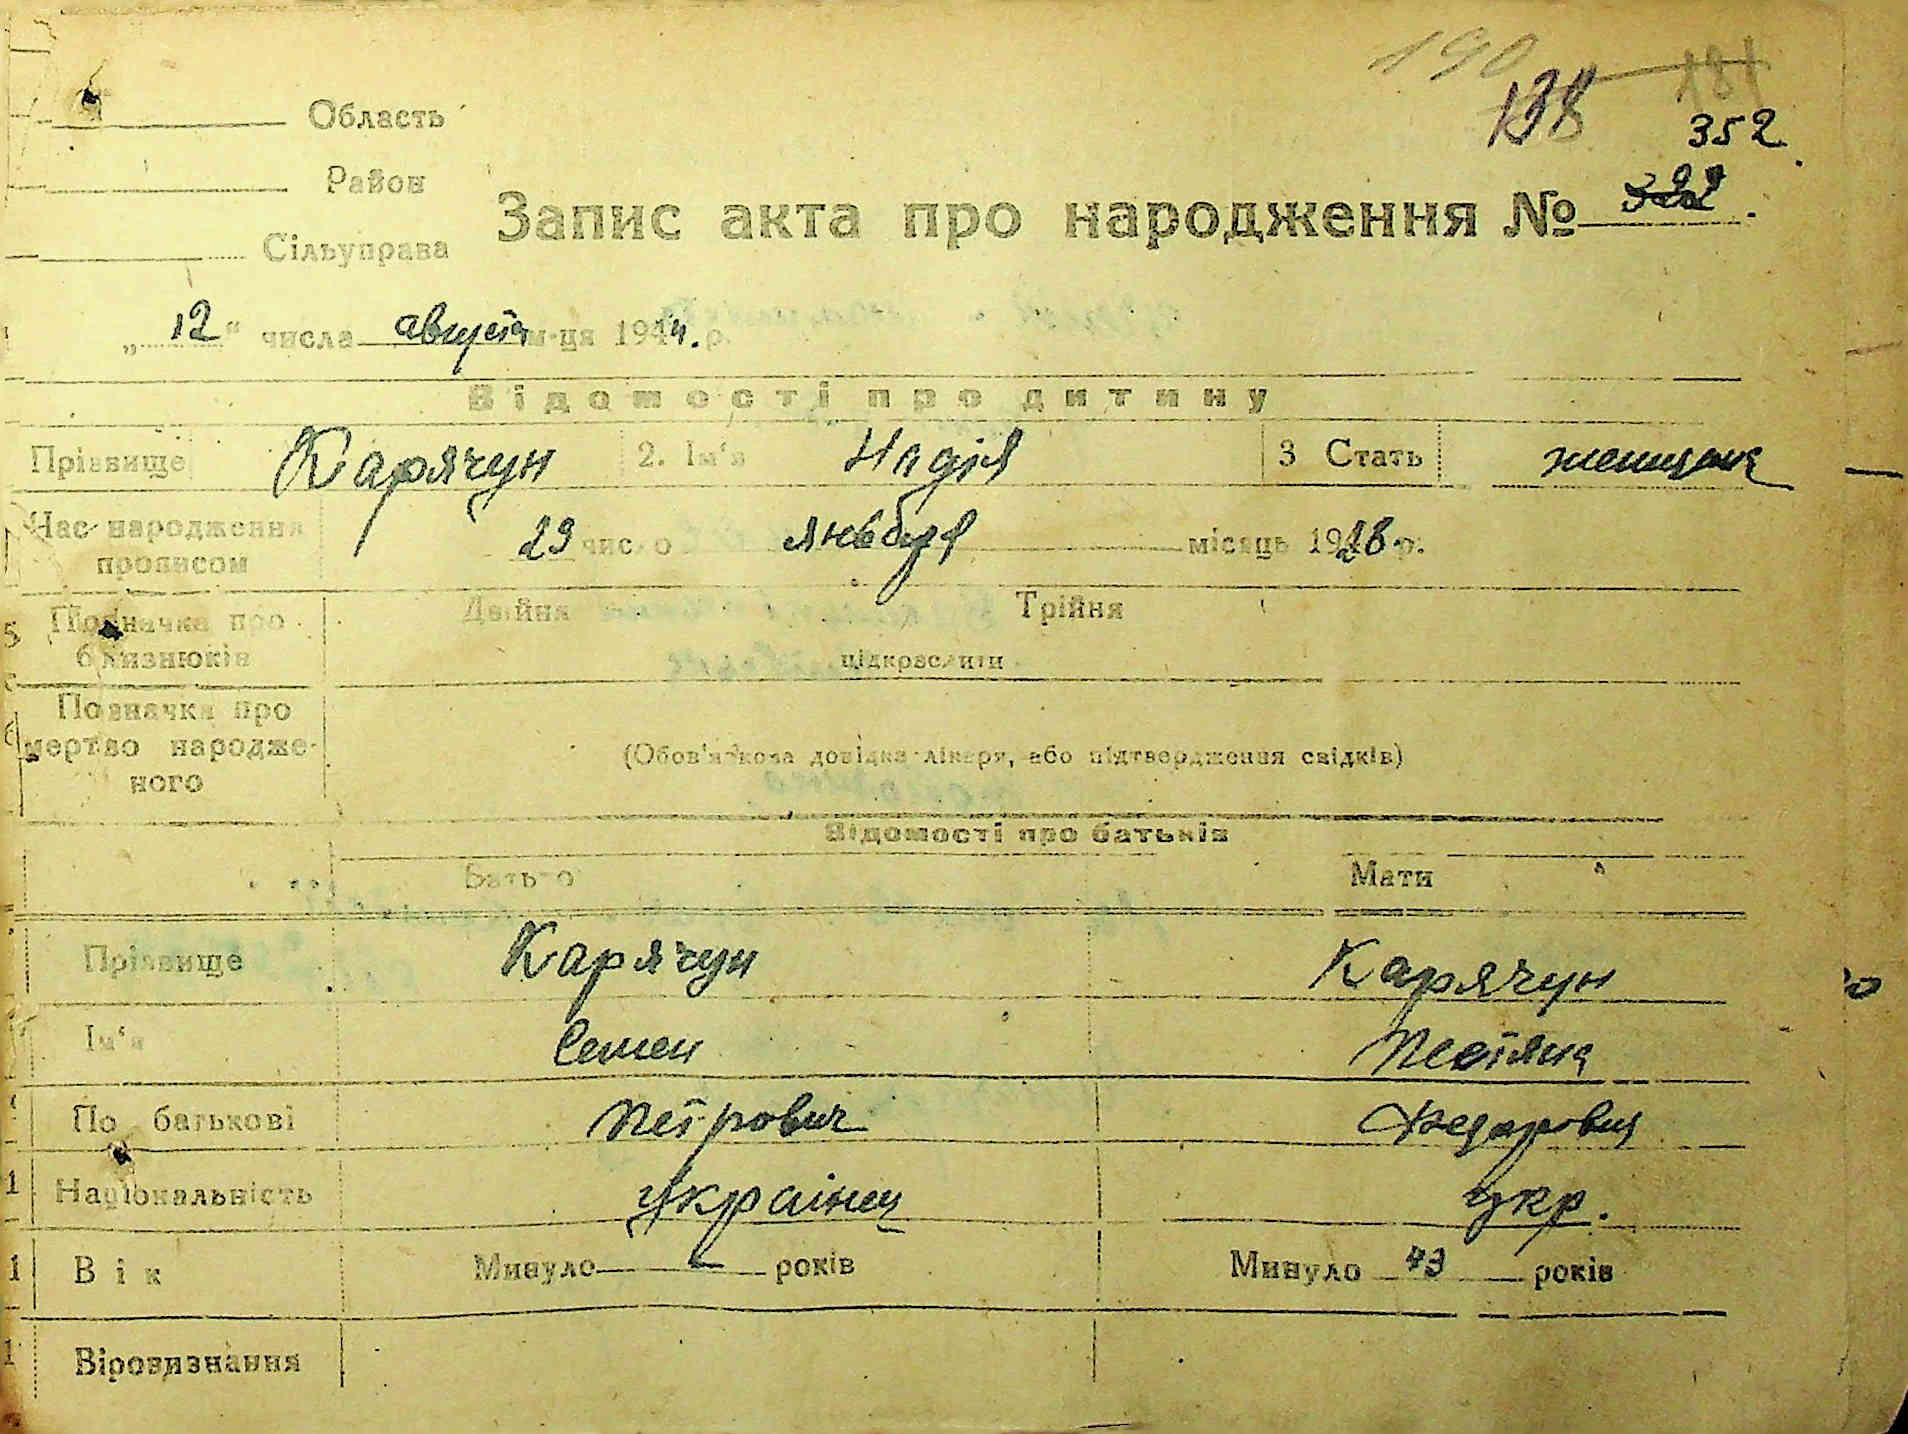 190
138 181
352
Область
Район
Сільуправа
Запис акта про народження №
„12" числа августа м-ця 1944. р.
Відомості про дитину
Прізвище Карячун 2. Ім'я Надія 3 Стать женщина
Час народження прописом 29 число января місяць 1928 р.
5 Позначка про близнюків Двійня Трійня
підкреслити
6 Позначка про мертво народженого
(Обов'язкова довідка лікаря, або підтвердження свідків)
Відомості про батьків
Батько Мати
Прізвище Карячун Карячун
Ім'я Семен
По батькові Петрович
Національність українец укр.
Вік Минуло — років Минуло 43 років
Віровизнання